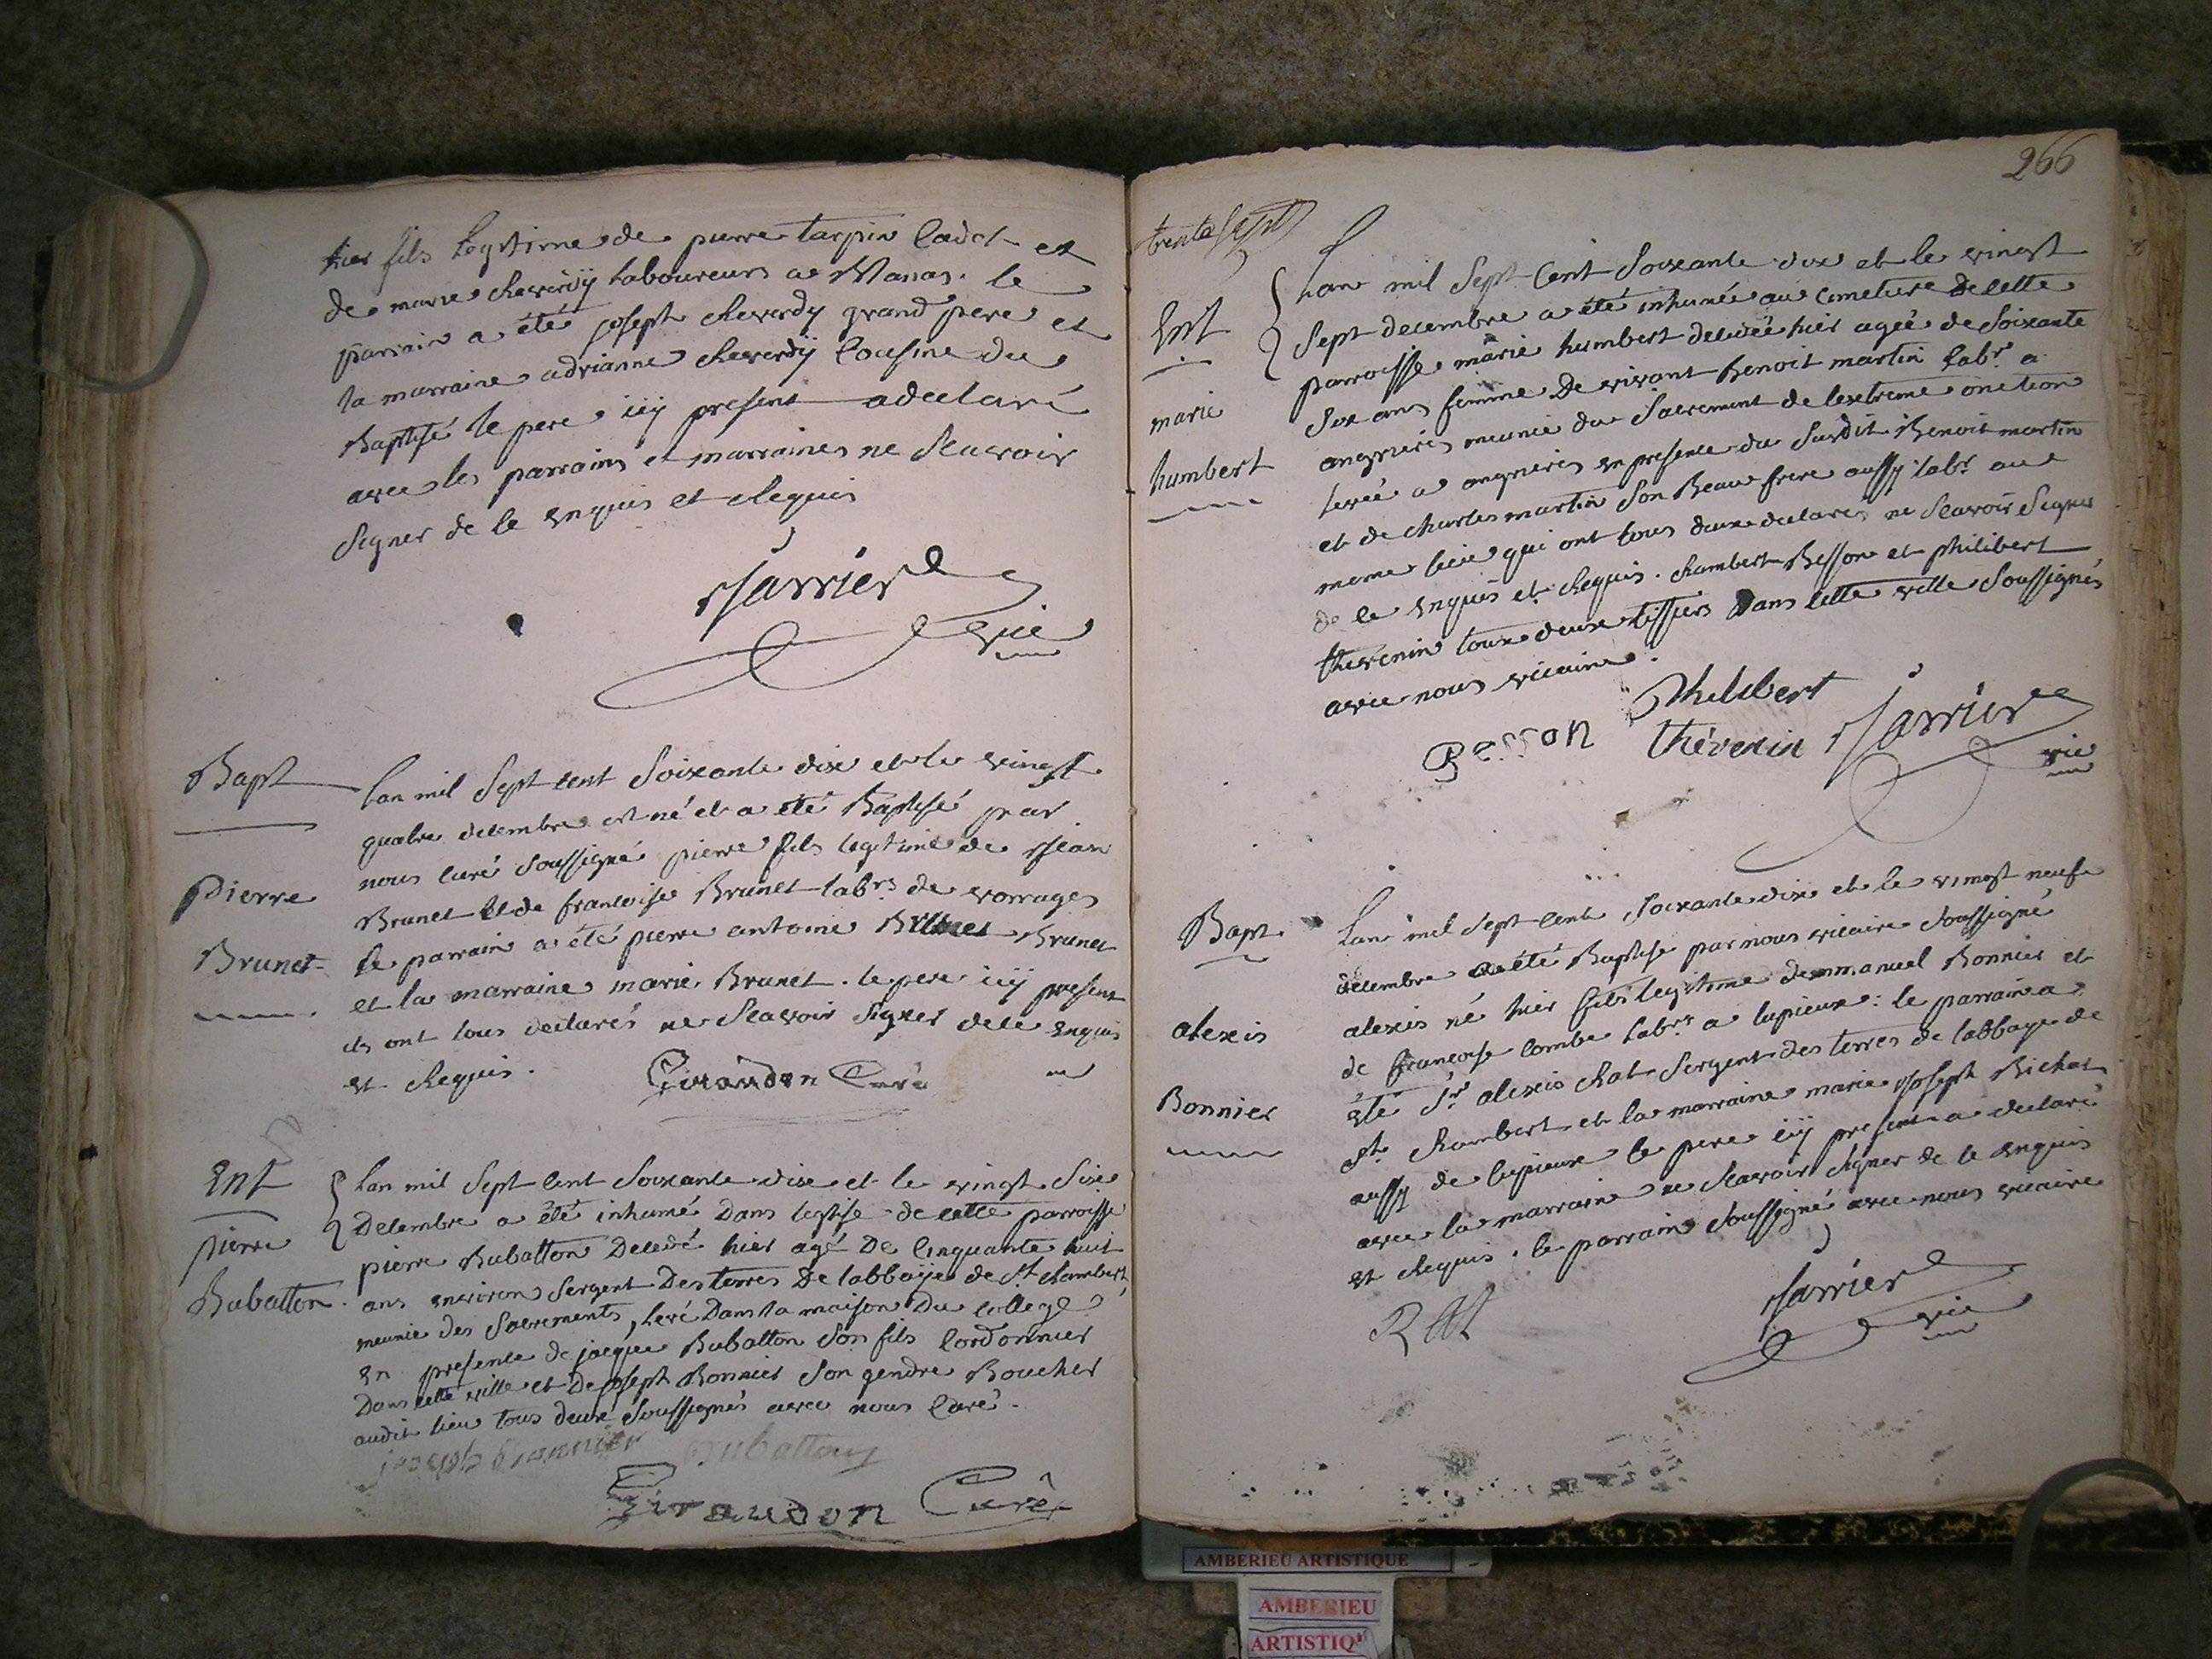 hier fils legitime de pierre tarpin Cadet et
de marie Reverdÿ laboureurs a Vanas. le
parrain a été joseph Reverdy grand pere et
la marraine adrianne Reverdÿ Cousine du
Baptisé le pere icy present a declaré
avec les parrains et marraines ne Scavoir
Signer de ce enquis et Requis
Jarrier
vic
Bapt
Pierre
Brunet
Lan mil Sept cent Soixante dix et le vingt
quatre decembre est né et a été Baptisé par
nous curé Soussigné pierre fils legitime de Jean
Brunet et de francoise Brunet labrs de vorrages
le parrain a été pierre antoine Brunet
et la marraine marie Brunet. le pere icÿ present
ils ont tous declarés ne Scavoir Signer de ce enquis
et Requis.
Girandon Curé
Ent
pierre
Babatton.
Lan mil Sept cent Soixante dix et le vingt Six
Decembre a été inhumé Dans leglise de cette parroisse
pierre Babatton Decedé hier agé De Cinquante huit
ans environ Sergent Des terres De labbaÿe de St Rambert,
meunie des Sacrements, levé Dans la maison Du College
En presence de jacque Babatton Son fils Cordonnier
Dans cette ville et De joseph Bonnier Son gendre Boucher
audit lieu tous deux Soussignés avec nous Curé.
joseph Bonnier Babatton
Giraudon Curé
266
trente Sept
Ent
marie
humbert
Lan mil Sept Cent Soixante dix et le vingt
Sept decembre a été inhumée au Cimetiere De cette
parroisse marie humbert decedée hier agée de Soixante
dix ans femme De vivant Benoit martin labr a
angrieres meunie du Sacrement de lextreme onction
levée a angrieres en presence du Susdit Benoit martin
et de charles martin Son Beau frere aussy labr au
meme lieu qui ont tous deux declarés ne Scavoir Signer
de ce enquis et Requis. Rambert Besson et philibert
thevenin toux deux tissiers Dans cette ville Soussignés
avec nous vicaire.
Besson Philibert
thévenin Jarrier
vic
Bapt
alexis
Bonnier
Lan mil Sept Cent Soixante dix et le vingt neuf
decembre a été Baptisé par nous vicaire Soussigné
alexis né hier fils legitime demmanuel Bonnier et
de francoise Combe labrs a lupieux: le parrain a
Eté Sr alexis Rat Sergent des terres de labbaye de
St Rambert et la marraine marie joseph Bichat
aussy de lupieux le pere icÿ present a declaré
avec la marraine ne Scavoir Signer de ce enquis
et Requis. le parrain Soussigné avec nous vicaire
Rat Jarrier
vic
AMBERIEU ARTISTIQUE
AMBERIEU
ARTISTIQ